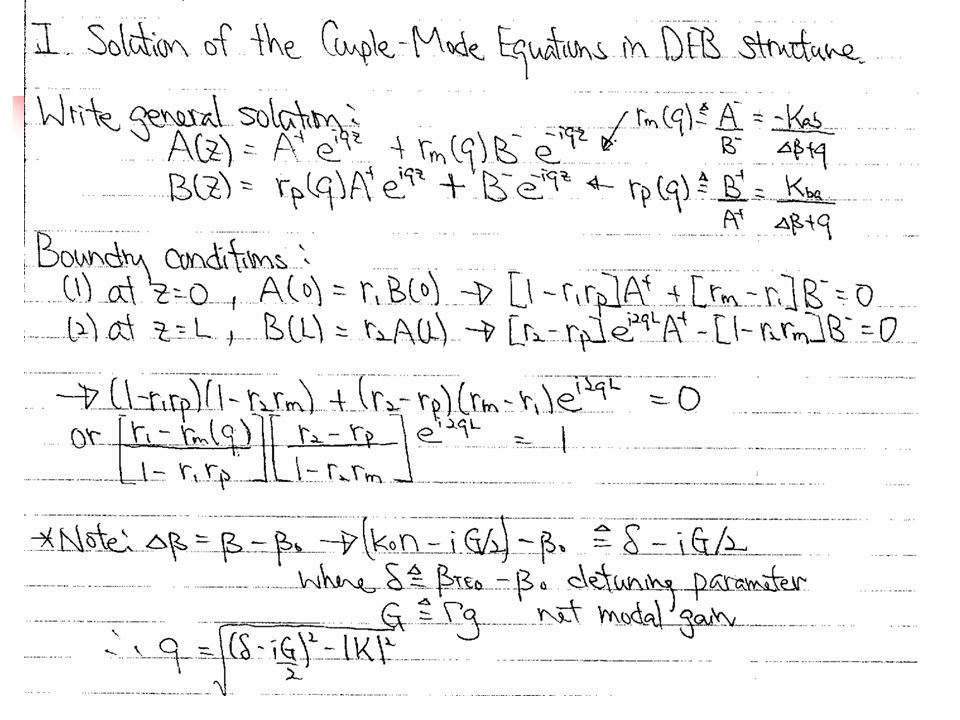 I. Solution of the Couple-Mode Equations in DFB structure.
Write general solution:
A(z) = A⁺ e^{iqz} + rm(q) B⁻ e^{-iqz} ← rm(q) ≜ A⁻/B⁻ = -Kab/(Δβ+q)
B(z) = rp(q) A⁺ e^{iqz} + B⁻ e^{-iqz} ← rp(q) ≜ B⁺/A⁺ = Kba/(Δβ+q)
Boundry conditions:
(1) at z=0, A(0) = r₁B(0) → [1-r₁rp]A⁺ + [rm-r₁]B⁻ = 0
(2) at z=L, B(L) = r₂A(L) → [r₂-rp]e^{i2qL}A⁺ - [1-r₂rm]B⁻ = 0
→ (1-r₁rp)(1-r₂rm) + (r₂-rp)(rm-r₁)e^{i2qL} = 0
or [(r₁-rm(q))/(1-r₁rp)][(r₂-rp)/(1-r₂rm)] e^{i2qL} = 1
*Note: Δβ = β-β₀ → (k₀n - iG/2) - β₀ ≜ δ - iG/2
where δ ≜ βTE0 - β₀ detuning parameter
G ≜ Γg net modal gain
∴ q = √((δ-iG/2)² - |K|²)